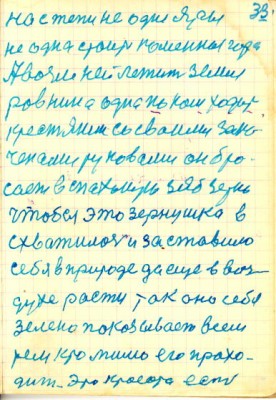 39.
на степи не одни яры
не одна стоит каменная года
А возли ней лежит земля
ровнина одна по ком ходит
крестянин со своими зако
ченами руковами он бро-
сает в спаханую зяб зерно
чтобы это зернушка в
схватилось и заставило
себя в природе да еще в воз-
духе расти так оно себя
зелено показывает всем
тем кто мимо его прохо-
дит. Это красота есть